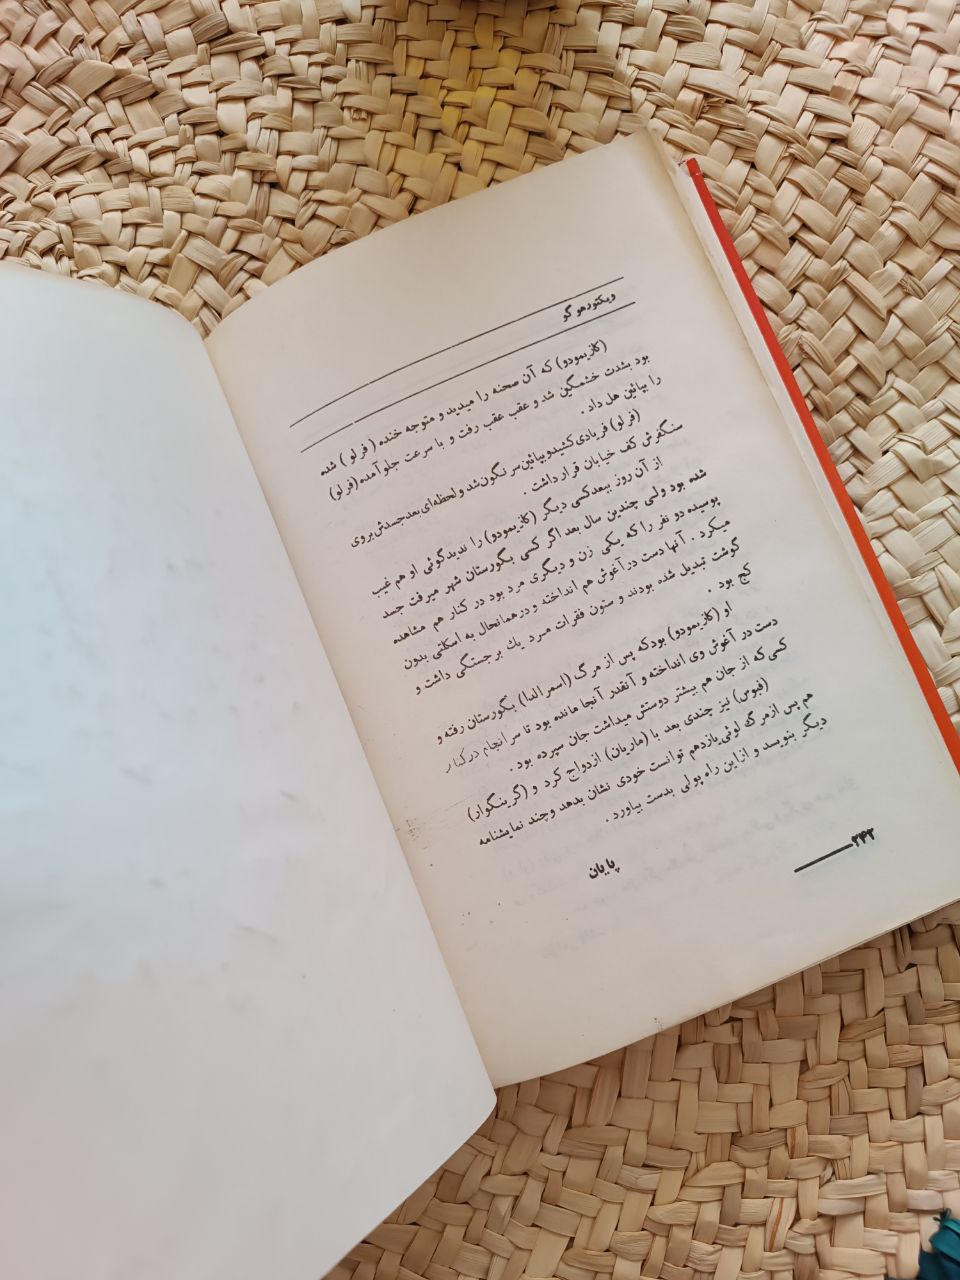 ویکتورهوگو
(کازیمودو) که آن صحنه را میدید و متوجه خنده (فرلو) شده
بود بشدت خشمگین شد و عقب عقب رفت و با سرعت جلو آمده (فرلو)
را بپائین هل داد .
(فرلو) فریادی کشید و بپائین سرنگون شد و لحظه‌ای بعد جسدش بروی
سنگفرش کف خیابان قرار داشت .
از آن روز ببعد کسی دیگر (کازیمودو) را ندید گوئی او هم غیب
شده بود ولی چندین سال بعد اگر کسی بگورستان شهر میرفت جسد
پوسیده دو نفر را که یکی زن و دیگری مرد بود در کنار هم مشاهده
میکرد . آنها دست در آغوش هم انداخته و درهمانحال به اسکلتی بدون
گوشت تبدیل شده بودند و ستون فقرات مرد یك برجستگی داشت و
کج بود .
او (کازیمودو) بود که پس از مرگ (اسمرالدا) بگورستان رفته و
دست در آغوش وی انداخته و آنقدر آنجا مانده بود تا سرانجام در کنار
کسی که از جان هم بیشتر دوستش میداشت جان سپرده بود .
(فبوس) نیز چندی بعد با (ماریان) ازدواج کرد و (گرینگوار)
هم پس از مرگ لوئی یازدهم توانست خودی نشان بدهد و چند نمایشنامه
دیگر بنویسد و ازاین راه پولی بدست بیاورد .
پایان
۲۴۲